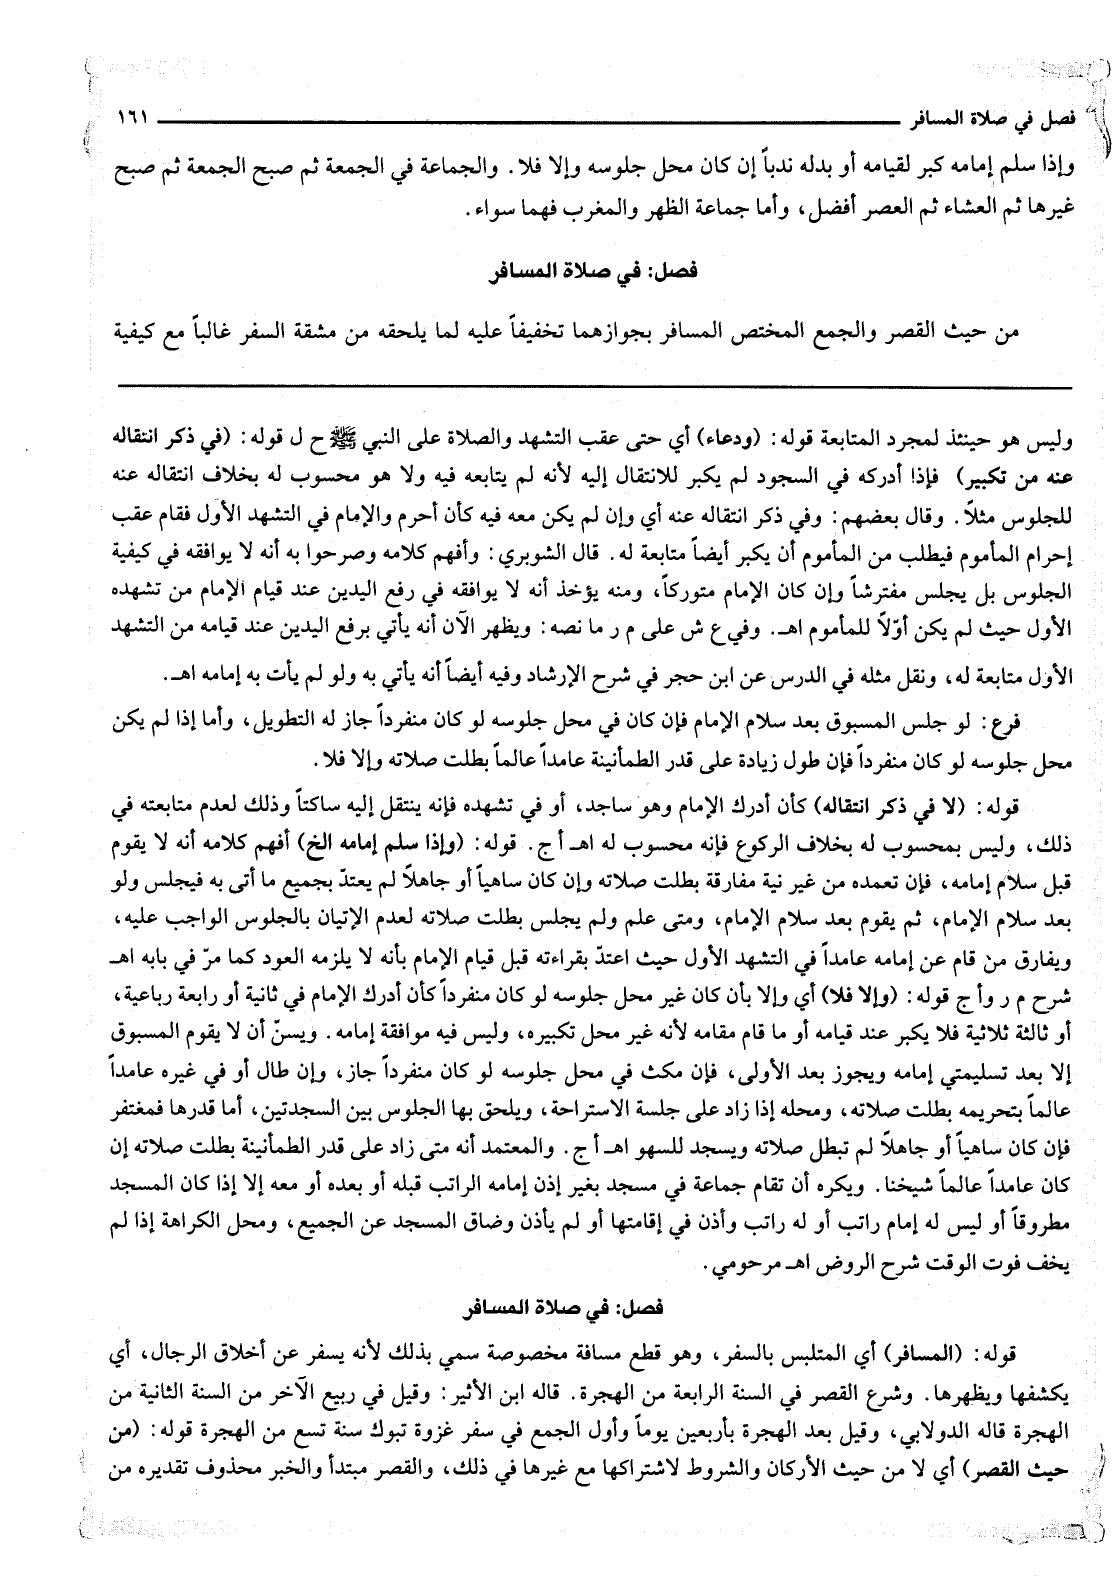 فصل في صلاة المسافر ١٦١
وإذا سلم إمامه كبر لقيامه أو بدله ندباً إن كان محل جلوسه وإلا فلا. والجماعة في الجمعة ثم صبح الجمعة ثم صبح
غيرها ثم العشاء ثم العصر أفضل، وأما جماعة الظهر والمغرب فهما سواء.
فصل: في صلاة المسافر
من حيث القصر والجمع المختص المسافر بجوازهما تخفيفاً عليه لما يلحقه من مشقة السفر غالباً مع كيفية
وليس هو حينئذ لمجرد المتابعة قوله: (ودعاء) أي حتى عقب التشهد والصلاة على النبي ﷺ ح ل قوله: (في ذكر انتقاله
عنه من تكبير) فإذا أدركه في السجود لم يكبر للانتقال إليه لأنه لم يتابعه فيه ولا هو محسوب له بخلاف انتقاله عنه
للجلوس مثلاً. وقال بعضهم: وفي ذكر انتقاله عنه أي وإن لم يكن معه فيه كأن أحرم والإمام في التشهد الأول فقام عقب
إحرام المأموم فيطلب من المأموم أن يكبر أيضاً متابعة له. قال الشوبري: وأفهم كلامه وصرحوا به أنه لا يوافقه في كيفية
الجلوس بل يجلس مفترشاً وإن كان الإمام متوركاً، ومنه يؤخذ أنه لا يوافقه في رفع اليدين عند قيام الإمام من تشهده
الأول حيث لم يكن أوّلاً للمأموم اهـ. وفي ع ش على م ر ما نصه: ويظهر الآن أنه يأتي برفع اليدين عند قيامه من التشهد
الأول متابعة له، ونقل مثله في الدرس عن ابن حجر في شرح الإرشاد وفيه أيضاً أنه يأتي به ولو لم يأت به إمامه اهـ.
فرع: لو جلس المسبوق بعد سلام الإمام فإن كان في محل جلوسه لو كان منفرداً جاز له التطويل، وأما إذا لم يكن
محل جلوسه لو كان منفرداً فإن طول زيادة على قدر الطمأنينة عامداً عالماً بطلت صلاته وإلا فلا.
قوله: (لا في ذكر انتقاله) كأن أدرك الإمام وهو ساجد، أو في تشهده فإنه ينتقل إليه ساكتاً وذلك لعدم متابعته في
ذلك، وليس بمحسوب له بخلاف الركوع فإنه محسوب له اهـ أ ج. قوله: (وإذا سلم إمامه الخ) أفهم كلامه أنه لا يقوم
قبل سلام إمامه، فإن تعمده من غير نية مفارقة بطلت صلاته وإن كان ساهياً أو جاهلاً لم يعتدّ بجميع ما أتى به فيجلس ولو
بعد سلام الإمام، ثم يقوم بعد سلام الإمام، ومتى علم ولم يجلس بطلت صلاته لعدم الإتيان بالجلوس الواجب عليه،
ويفارق من قام عن إمامه عامداً في التشهد الأول حيث اعتدّ بقراءته قبل قيام الإمام بأنه لا يلزمه العود كما مرّ في بابه اهـ
شرح م ر وأ ج قوله: (وإلا فلا) أي وإلا بأن كان غير محل جلوسه لو كان منفرداً كأن أدرك الإمام في ثانية أو رابعة رباعية،
أو ثالثة ثلاثية فلا يكبر عند قيامه أو ما قام مقامه لأنه غير محل تكبيره، وليس فيه موافقة إمامه. ويسنّ أن لا يقوم المسبوق
إلا بعد تسليمتي إمامه ويجوز بعد الأولى، فإن مكث في محل جلوسه لو كان منفرداً جاز، وإن طال أو في غيره عامداً
عالماً بتحريمه بطلت صلاته، ومحله إذا زاد على جلسة الاستراحة، ويلحق بها الجلوس بين السجدتين، أما قدرها فمغتفر
فإن كان ساهياً أو جاهلاً لم تبطل صلاته ويسجد للسهو اهـ أ ج. والمعتمد أنه متى زاد على قدر الطمأنينة بطلت صلاته إن
كان عامداً عالماً شيخنا. ويكره أن تقام جماعة في مسجد بغير إذن إمامه الراتب قبله أو بعده أو معه إلا إذا كان المسجد
مطروقاً أو ليس له إمام راتب أو له راتب وأذن في إقامتها أو لم يأذن وضاق المسجد عن الجميع، ومحل الكراهة إذا لم
يخف فوت الوقت شرح الروض اهـ مرحومي.
فصل: في صلاة المسافر
قوله: (المسافر) أي المتلبس بالسفر، وهو قطع مسافة مخصوصة سمي بذلك لأنه يسفر عن أخلاق الرجال، أي
يكشفها ويظهرها. وشرع القصر في السنة الرابعة من الهجرة. قاله ابن الأثير: وقيل في ربيع الآخر من السنة الثانية من
الهجرة قاله الدولابي، وقيل بعد الهجرة بأربعين يوماً وأول الجمع في سفر غزوة تبوك سنة تسع من الهجرة قوله: (من
حيث القصر) أي لا من حيث الأركان والشروط لاشتراكها مع غيرها في ذلك، والقصر مبتدأ والخبر محذوف تقديره من